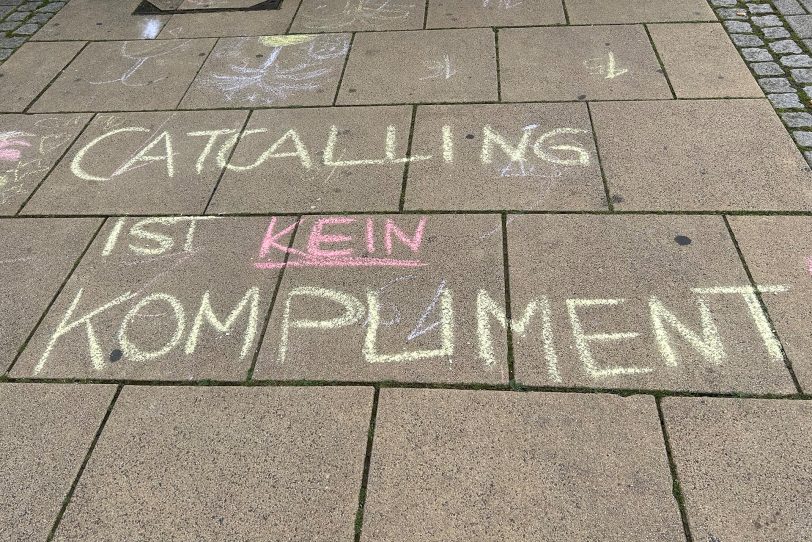 CATCALLING
IST KEIN
KOMPLIMENT